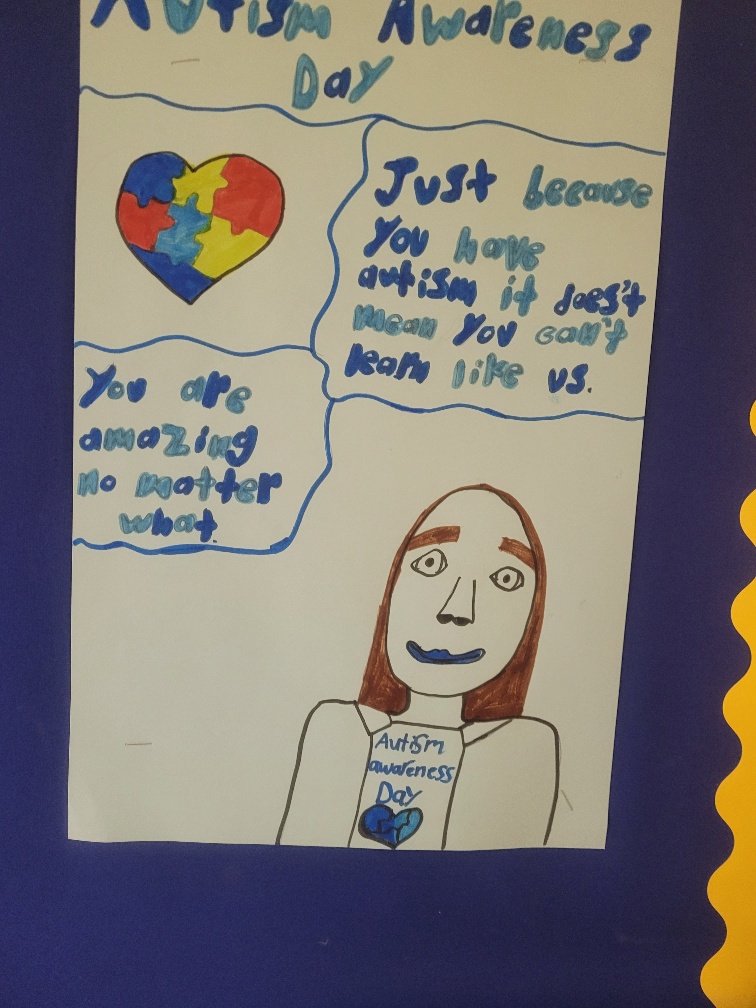 Autism Awareness
Day
Just because
You have
autism it does't
mean You can't
learn like us.
You are
amazing
no matter
what.
Autism
awareness
Day